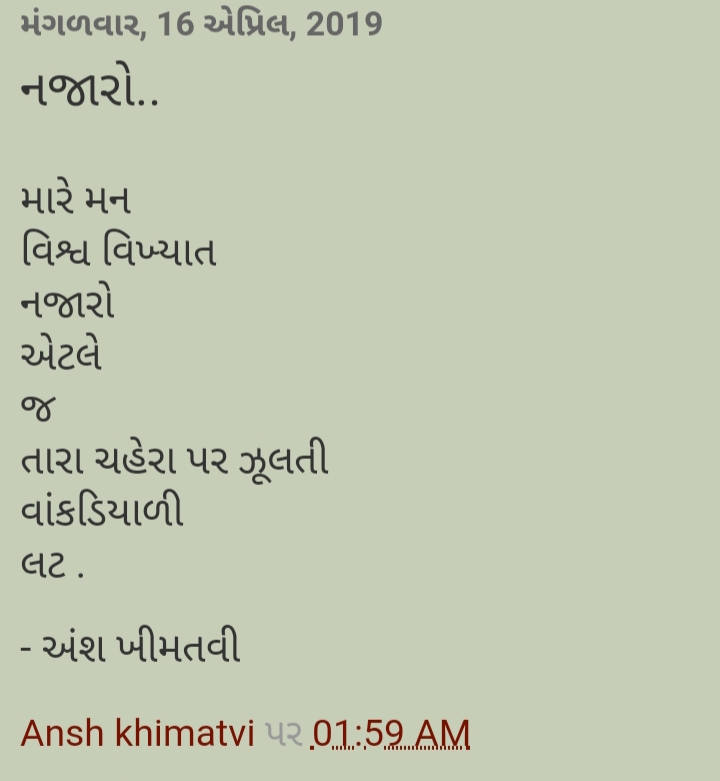 મંગળવાર, 16 એપ્રિલ, 2019
નજારો..
મારે મન
વિશ્વ વિખ્યાત
નજારો
એટલે
જ
તારા ચહેરા પર ઝૂલતી
વાંકડિયાળી
લટ .
- અંશ ખીમતવી
Ansh khimatvi પર 01:59 AM